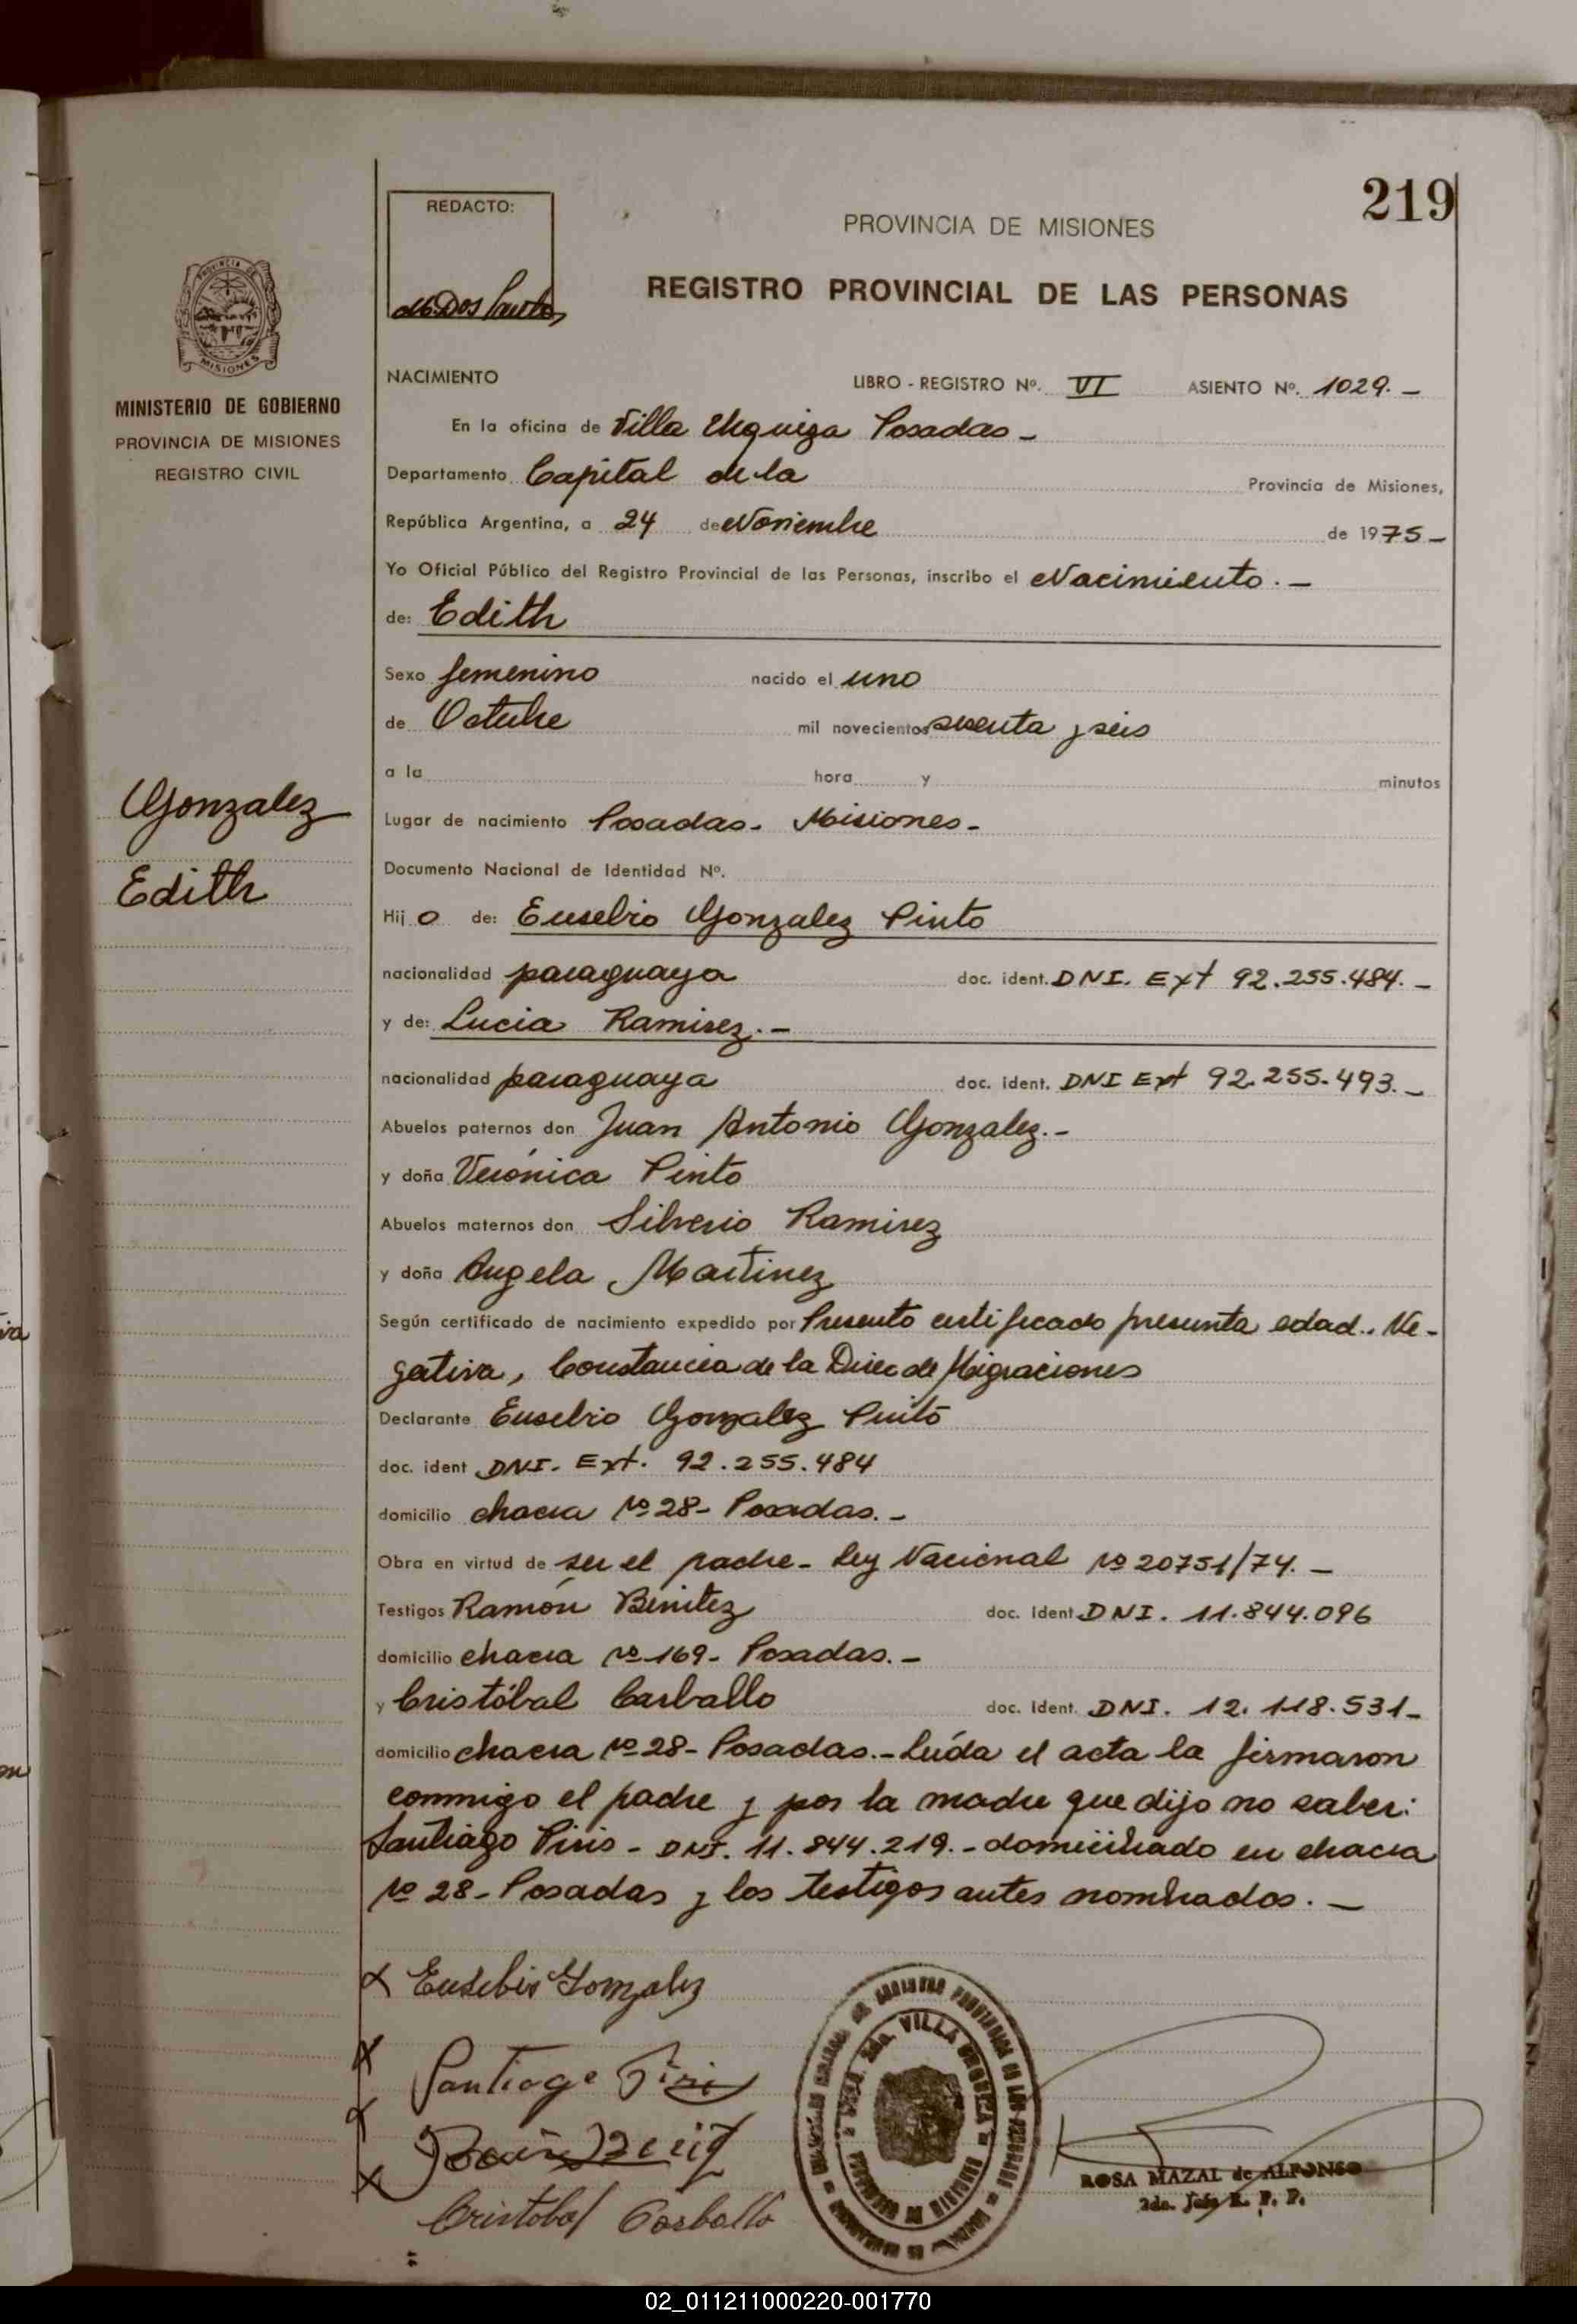 219
REDACTO:
PROVINCIA DE MISIONES
REGISTRO PROVINCIAL DE LAS PERSONAS
MINISTERIO DE GOBIERNO
PROVINCIA DE MISIONES
REGISTRO CIVIL
NACIMIENTO LIBRO - REGISTRO Nº. VI ASIENTO Nº. 1029.-
En la oficina de Villa Urquiza Posadas -
Departamento Capital de la Provincia de Misiones,
República Argentina, a 24 de Noviembre de 1975-
Yo Oficial Público del Registro Provincial de las Personas, inscribo el Nacimiento.-
de: Edith
Sexo femenino nacido el uno
de Octubre mil novecientos sesenta y seis
a la hora y minutos
Gonzalez
Edith
Lugar de nacimiento Posadas- Misiones-
Documento Nacional de Identidad Nº.
Hij o de: Eusebio Gonzalez Pinto
nacionalidad paraguaya doc. ident. DNI. Ext 92.255.484.-
y de: Lucia Ramirez.-
nacionalidad paraguaya doc. ident. DNI Ext 92.255.493.-
Abuelos paternos don Juan Antonio Gonzalez.-
y doña Verónica Pinto
Abuelos maternos don Silverio Ramirez
y doña Angela Martinez
Según certificado de nacimiento expedido por Presento certificado presunta edad., Ne-
gativa, Constancia de la Direc de Migraciones
Declarante Eusebio Gonzalez Pinto
doc. ident DNI. Ext. 92.255.484
domicilio chacra Nº 28- Posadas.-
Obra en virtud de ser el padre- ley Nacional Nº 20751/74.-
Testigos Ramón Benitez doc. Ident. DNI. 11.844.096
domicilio chacra Nº 169- Posadas.-
y Cristóbal Carballo doc. Ident. DNI. 12.118.531-
domicilio chacra Nº 28- Posadas.- Leída el acta la firmaron
conmigo el padre y por la madre que dijo no saber:
Santiago Piris - DNI. 11.844.219.- domiciliado en chacra
Nº 28- Posadas y los testigos antes nombrados.-
Eusebio Gonzalez
Santiago Piris
Cristobal Carballo
VILLA URQUIZA
ROSA MAZAL de ALFONSO
2da. Jefe R. P. P.
02_011211000220-001770